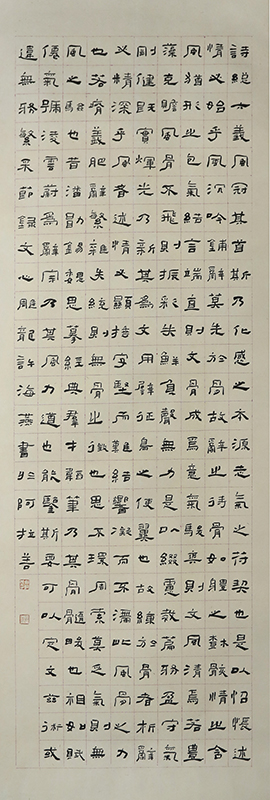 詩總六義風冠其首斯乃化感之本源志氣之符契也是以怊悵述
情必始乎風沉吟鋪辭莫先於骨故辭之待骨如體之樹骸情之含
風猶形之包氣結言端直則文骨成焉意氣駿爽則文風清焉若豐
藻克贍風骨不飛則振采失鮮負聲無力是以綴慮裁篇務盈守氣
剛健既實輝光乃新其為文用譬征鳥之使翼也故練於骨者析辭
必精深乎風者述情必顯捶字堅而難結響凝而不滯此風骨之力
也若瘠義肥辭繁雜失統則無骨之徵也思不環周索莫乏氣則無
風之驗也昔潘勖錫魏思摹經典群才韜筆乃其骨髓峻也相如賦
僊氣號凌雲蔚為辭宗乃其風力遒也能鑒斯要可以定文茲術或
違無務繁采節錄文心雕龍許海燕書於阿拉善